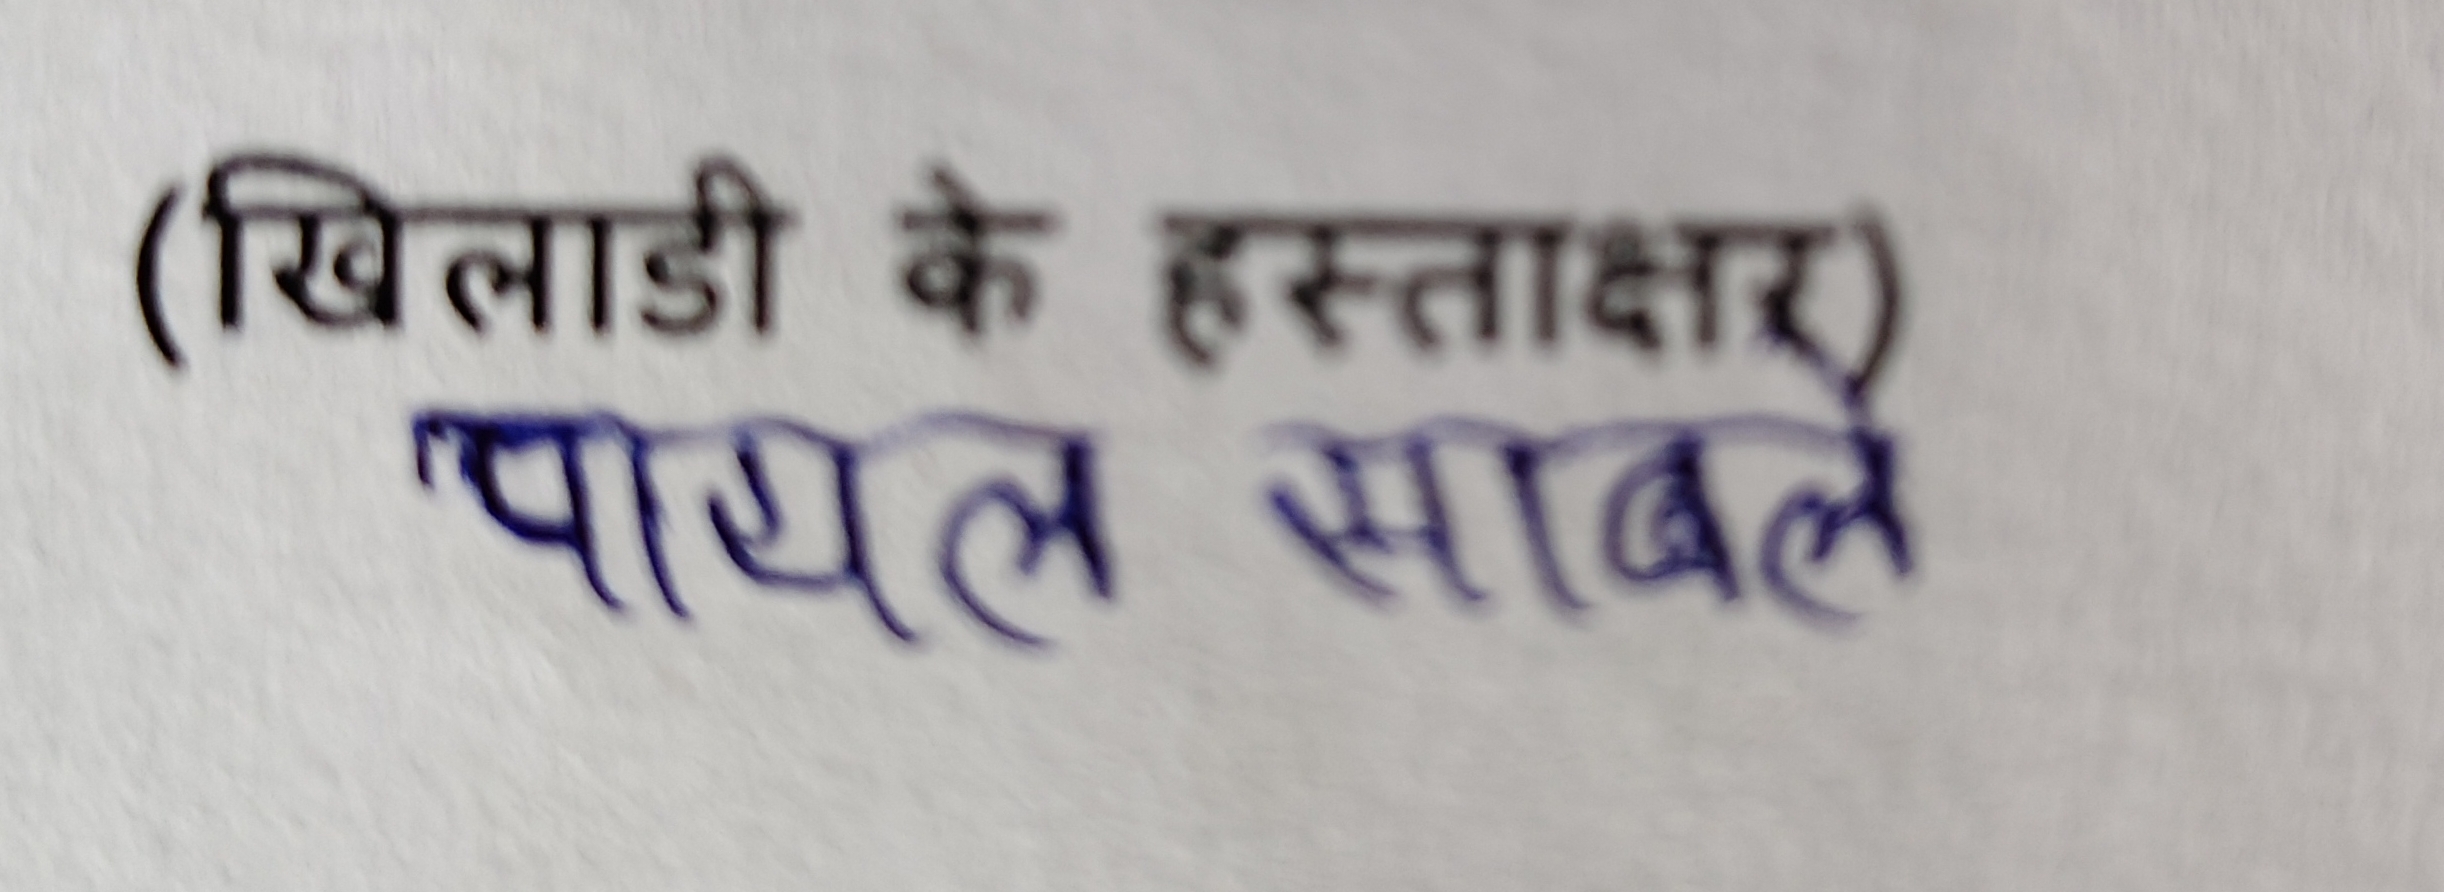 (खिलाडी के हस्ताक्षर)
पायल साबले